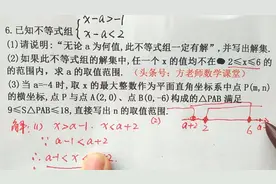 6.已知不等式组{x-a>-1
x-a<2
(1)请说明:“无论a为何值,此不等式组一定有解”,并写出解集.
(2)如果此不等式组的解集中,任一个x的值均不在2≤x≤6的
的范围内,求a的取值范围.(头条号:方老师数学课堂)
(3)当a=-4时,取x的最大整数作为平面直角坐标系中点P(m,n)
的横坐标,点P与点A(2,0)、点B(0,-6)构成的△PAB满足
9≤S△PAB≤18,直接写出n的取值范围.
解:(1) x>a-1. x<a+2 (2)
a+2 2 6 a-
∵ a-1<a+2
∴ a-1<x<